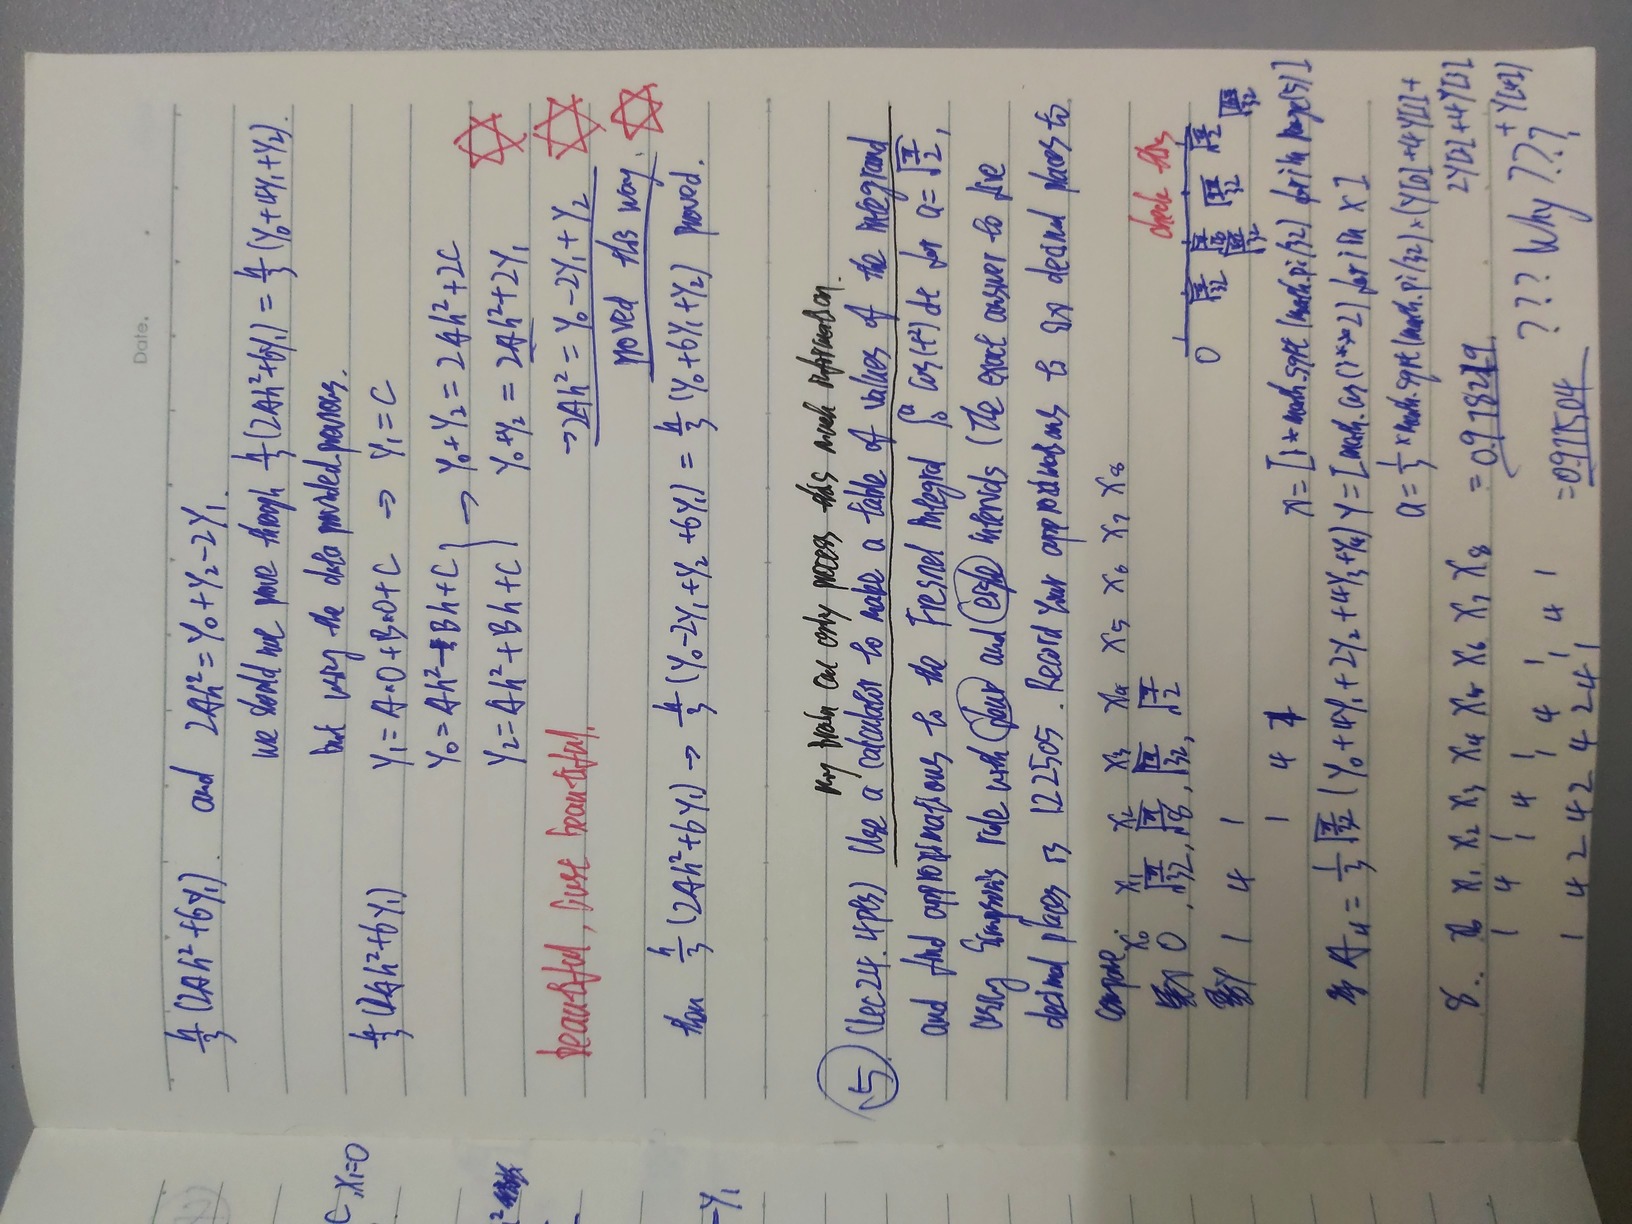 Date.
h/3 (2Ah²+6Y₁). and 2Ah² = Y₀+Y₂-2Y₁.
we should not prove through h/3 (2Ah²+6Y₁) = h/3 (Y₀+4Y₁+Y₂).
but using the data provided previous.
C, X₁=0
h/3 (2Ah²+6Y₁) Y₁=A*0+B*0+C → Y₁=C
Y₀=Ah²-Bh+C → Y₀+Y₂ = 2Ah²+2C
Y₂=Ah²+Bh+C Y₀+Y₂ = 2Ah²+2Y₁
beautiful, just beautiful. →2Ah² = Y₀-2Y₁+Y₂
proved this way.
-Y₁
then h/3 (2Ah²+6Y₁) → h/3 (Y₀-2Y₁+Y₂+6Y₁) = h/3 (Y₀+6Y₁+Y₂) proved.
my brain can only process this much information.
5. (Lec24. 4pts) Use a calculator to make a table of values of the integrand
and find approximations to the Fresnel integral ∫₀ᵃ cos(t²)dt for a=√(π/2),
using Simpson's rule with four and eight intervals (The exact answer to five
decimal places is 122505. Record your approximations to six decimal places to
compare.
X₀ X₁ X₂ X₃ X₄ X₅ X₆ X₇ X₈
X 0, √(π/32), √(π/8), √(π/32), √(π/2)
check this
0 √(π/32) √(π/8) √(9π/32) √(π/2)
√(16π/32)
Y 1 4 1
1 4 1
x=[i*math.sqrt(math.pi/32) for i in range(5)]
A₄ = 1/3 √(π/32) (Y₀+4Y₁+2Y₂+4Y₃+Y₄) Y=[math.cos(i**2) for i in x]
a = 1/3 * math.sqrt(math.pi/32)*(Y[0]+4Y[1]+
2Y[2]+4Y[3]
+Y[4])
8.. X₀ X₁ X₂ X₃ X₄ X₅ X₆ X₇ X₈ =0.978219.
1 4 1
1 4 1
1 4 1
1 4 1
??? Why ???
1 4 2 4 2 4 2 4 1 =0.977504